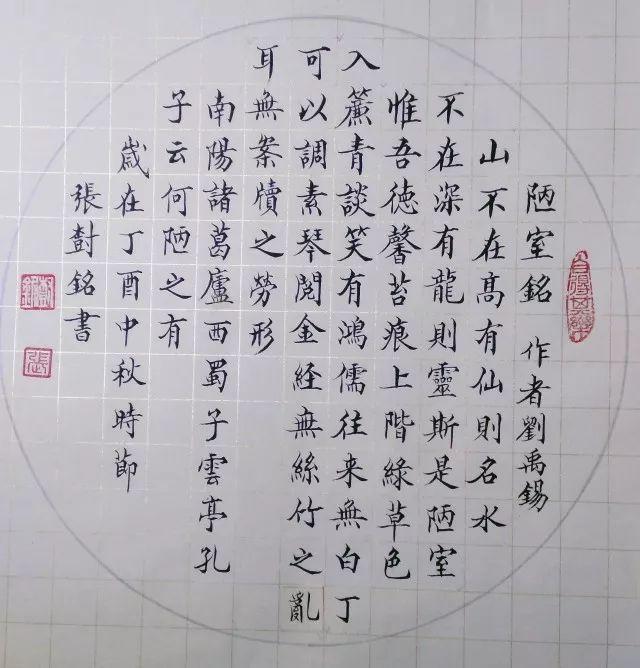 陋室銘 作者劉禹錫
山不在髙有仙則名水
不在深有龍則靈斯是陋室
惟吾徳馨苔痕上階綠草色
入簾青談笑有鴻儒往来無白丁
可以調素琴閲金経無絲竹之亂
耳無案牘之勞形
南陽諸葛廬西蜀子雲亭孔
子云何陋之有
歲在丁酉中秋時節
張尌銘書
張